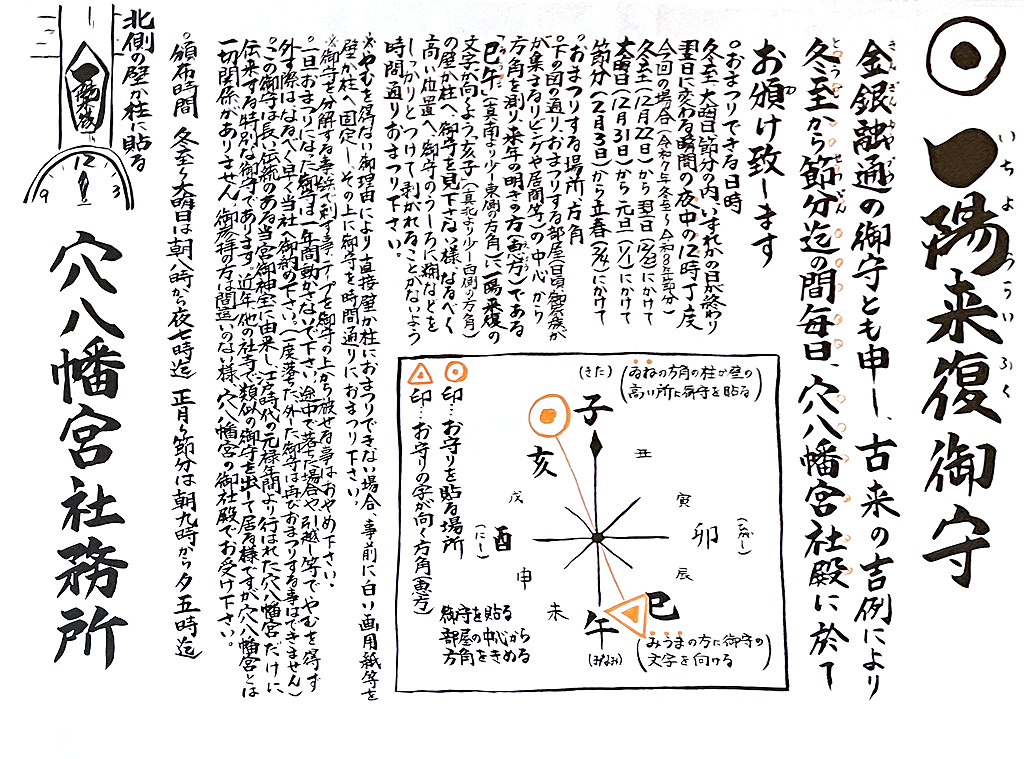 一陽来復御守
いちようらいふく
金銀融通の御守とも申し、古来の吉例により
きんぎんゆうづう
冬至から節分迄の間毎日、穴八幡宮社殿に於て
とうじ せつぶん
お頒け致します
わ
○おまつりできる日時
冬至、大晦日、節分の内、いずれかの日が終わり
翌日に変わる瞬間の夜中の12時丁度
今回の場合(令和7年冬至〜令和8年節分)
冬至(12月22日)から翌日(12/23)にかけて
大晦日(12月31日)から元旦(1/1)にかけて
節分(2月3日)から立春(2/4)にかけて
○おまつりする場所・方角
○下の図の通り、おまつりする部屋(日頃、御家族が
が集まるリビングや居間等)の中心から
方角を測り、来年の明きの方(恵方)である
「巳午」(真南より少し東側の方角)に一陽来復の
文字が向くよう、亥子(真北より少し西側の方角)
の壁か柱へ、御守を見下さない様、なるべく
高い位置へ、御守のうしろに糊などを
しっかりとつけて剥がれることがないよう
時間通りおまつり下さい。
※やむを得ない御理由により直接壁か柱におまつりできない場合、事前に白い画用紙等を
壁か柱へ固定し、その上に御守を時間通りにおまつり下さい。
※御守を分解する事、鋲で刺す事、テープを御守の上から被せる事はおやめ下さい。
○一旦おまつりになった御守は一年間動かさないで下さい。途中で落ちた場合や引越し等でやむを得ず
外す際は、なるべく早く当社へ御納め下さい。(一度落ちた、外した御守は再びおまつりする事はできません)
○この御守は長い伝統のある当宮御神宝に由来し、江戸時代の元禄年間より行はれた穴八幡宮だけに
伝来する特別な御守であります。近年、他の社寺で類似の御守を出して居る様ですが穴八幡宮とは
一切関係がありません。御参拝の方は間違いのない様、穴八幡宮の御社殿でお受け下さい。
○頒布時間 冬至から大晦日は朝八時から夜七時迄 正月から節分は朝九時から夕五時迄
穴八幡宮社務所
北側の壁か柱に貼る
一陽来復
9 12 3
(きた)
(ゐねの方角の柱か壁の
高い所に御守を貼る)
子
亥
丑
戌
寅
(にし)
酉
卯
(ひがし)
申
辰
未
巳
午
(みなみ)
(みうまの方に御守の
文字を向ける)
印…お守りを貼る場所
印…お守りの字が向く方角(恵方)
御守を貼る
部屋の中心から
方角をきめる